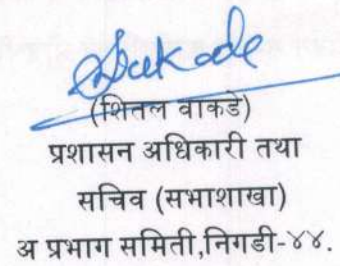 (शितल वाकडे)
प्रशासन अधिकारी तथा
सचिव (सभाशाखा)
अ प्रभाग समिती,निगडी-४४.